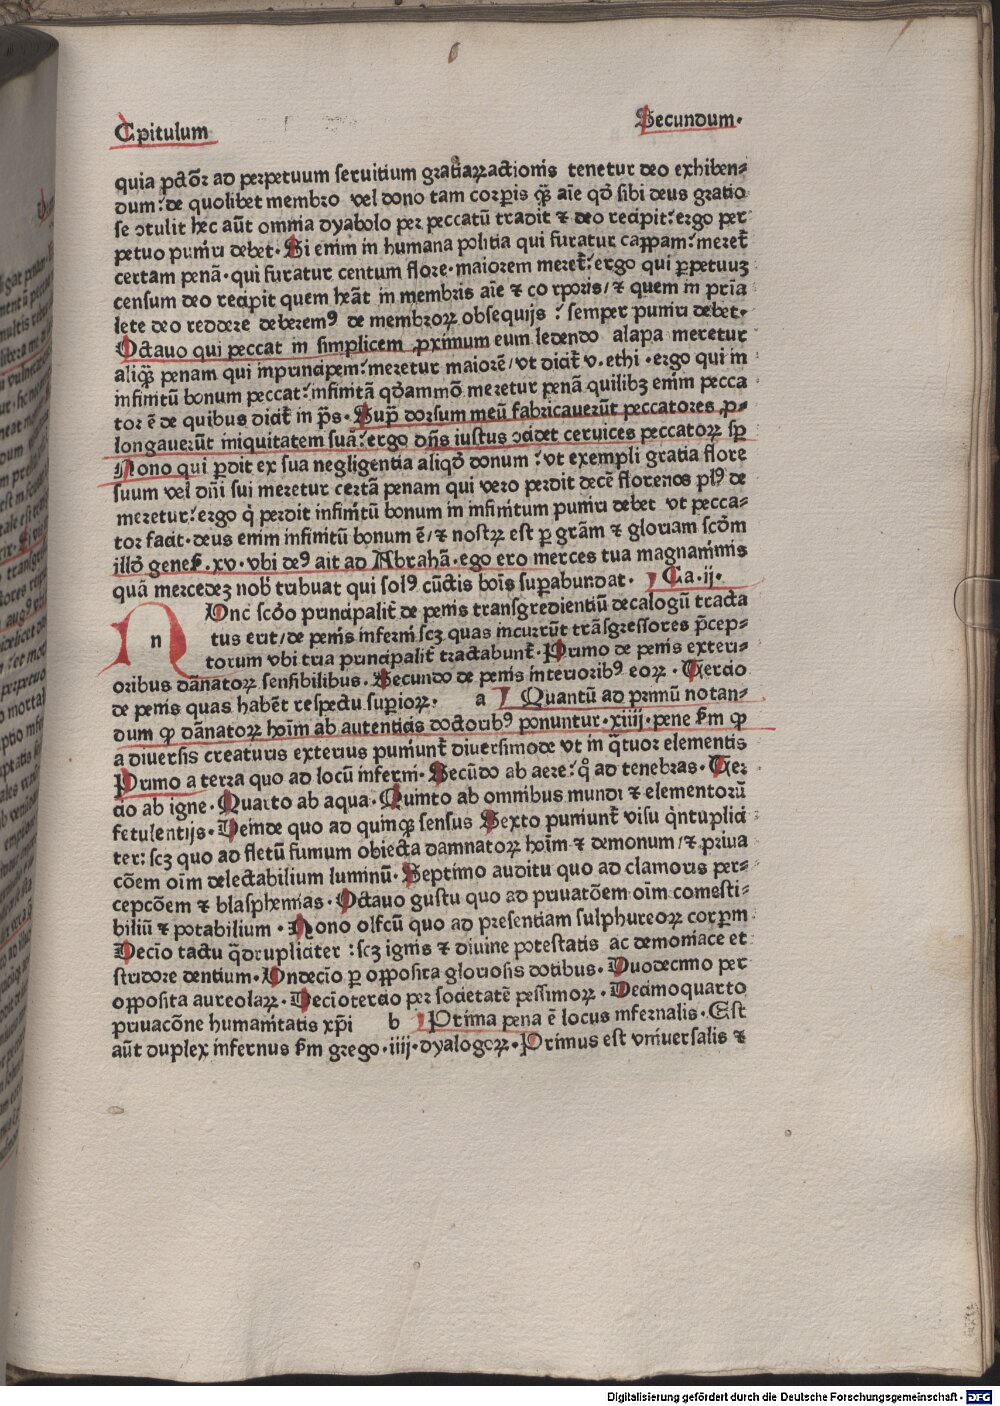 Cpitulum Secundum.
quia pctōꝝ ad perpetuum seruitium gratiaꝝ actionis tenetur deo exhiben⸗
dum: de quolibet membro vel dono tam corpis qȝ aīe qđ sibi deus gratio
se ↄtulit hec aūt omnia dyabolo per peccatū tradit ⁊ deo recipit: ergo per
petuo puniri debet. Si enim in humana politia qui furatur cappam: meret̄
certam penā. qui furatur centum flore. maiorem meret̄: ergo qui ꝑpetuuȝ
censum deo recipit quem heāt in membris aīe ⁊ corporis/ ⁊ quem in pria
lete deo reddere deberemꝰ de membroꝝ obsequijs : semper puniri debet.
Octauo qui peccat in simplicem ꝓximum eum ledendo alapa meretur
aliqȝ penam qui in principem: meretur maiorē/ vt dicit̄ v. ethi. ergo qui in
infinitū bonum peccat: infinitā qdāmmō meretur penā quilibȝ enim pecca
tor ē de quibus dicit̄ in ps. Supͣ dorsum meū fabricauerūt peccatores ꝓ⸗
longauerūt iniquitatem suā: ergo dn̄s iustus ↄcidet ceruices peccatoꝝ sp̄
Nono qui ꝑdit ex sua negligentia aliqđ donum : vt exempli gratia flore
suum vel dn̄i sui meretur certā penam qui vero perdit decē florenos plꝰ de
meretur: ergo q̇ perdit infinitū bonum in infinitum puniri debet vt pecca⸗
tor facit. deus enim infinitū bonum ē/ ⁊ nostꝝ est ꝑ grām ⁊ gloriam scđm
illđ genes. xv. vbi deꝰ ait ad Abrahā. ego ero merces tua magna nimis
quā mercedeȝ nob̄ tribuat qui solꝰ cūctis bōis suꝑabundat. Ca. ij.
n Unc scđo principalit̄ de penis transgredientiū decalogū tracta
tus erit/ de penis inferni scȝ quas incurrūt trāsgressores p̄cep⸗
torum vbi tria principalit̄ tractabunt̄. Primo de penis exteri⸗
oribus dānatoꝝ sensibilibus. Secundo de penis interioribꝰ eoꝝ. Tercio
de penis quas habēt respectu suꝑioꝝ. a Quantū ad primū notan⸗
dum ꝙ dānatoꝝ hoīm ab autenticis doctoribꝰ ponuntur. xiiij. pene ẜm ꝙ
a diuersis creaturis exterius puniunt̄ diuersimode vt in q̄tuor elementis
Primo a terra quo ad locū inferni. Secūdo ab aere: qͣ ad tenebras. Ter
cio ab igne. Quarto ab aqua. Quinto ab omnibus mundi ⁊ elementorū
fetulentijs. Deinde quo ad quinqȝ sensus Sexto puniunt̄ visu q̇ntuplici
ter: scȝ quo ad fletū fumum obiecta damnatoꝝ hoīm ⁊ demonum/ ⁊ priua
cōem oīm delectabilium luminū. Septimo auditu quo ad clamoris per⸗
cepcōem ⁊ blasphemias. Octauo gustu quo ad priuatōem oīm comesti⸗
biliū ⁊ potabilium . Nono olfcū quo ad presentiam sulphureoꝝ corpꝝm
Decīo tactu q̄drupliciter : scȝ ignis ⁊ diuine potestatis ac demoniace et
stridore dentium. Undecīo ꝑ opposita gloriosis dotibus. Duodecimo per
opposita aureolaꝝ. Decīotercio per societatē pessimoꝝ. Decimoquarto
priuacōne humanitatis xp̄i b Prima pena ē locus infernalis. Est
aūt duplex infernus ẜm grego. iiij. dyalogoꝝ. Primus est vniuersalis ⁊
Digitalisierung gefördert durch die Deutsche Forschungsgemeinschaft - DFG